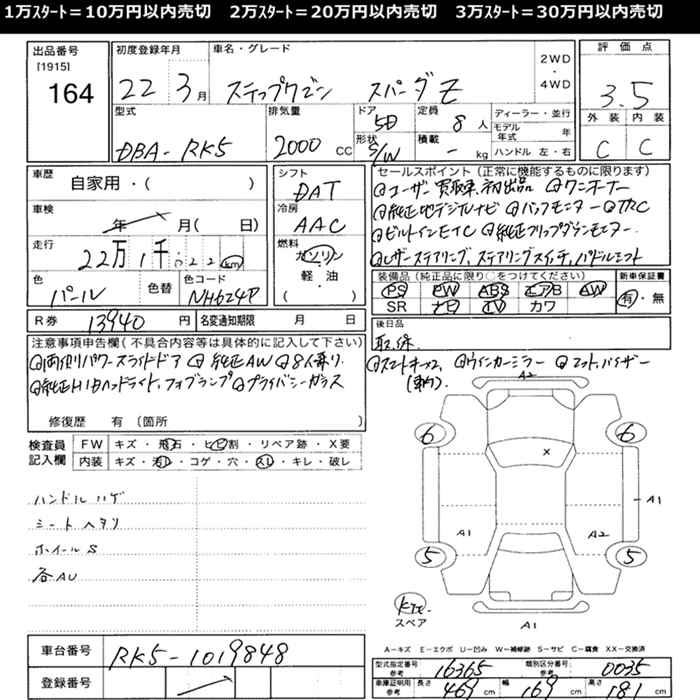 1万ｽﾀｰﾄ＝10万円以内売切　2万ｽﾀｰﾄ＝20万円以内売切　3万ｽﾀｰﾄ＝30万円以内売切
出品番号
[1915]
164
初度登録年月
22 3月
車名・グレード
ステップワゴン スパーダZ
2WD
・
4WD
評価点
3.5
外装 内装
C C
型式
DBA-RK5
排気量
2000 CC
ドア
5D
形状
S/W
定員
8人
積載
- kg
ディーラー・並行
モデル年式 年
ハンドル 左・右
車歴
自家用・( )
車検
年 月( 日)
走行
22万1千 km
色
パール
色替
色コード
NH624P
シフト
DAT
冷房
AAC
燃料
ガソリン
軽・油
( )
セールスポイント(正常に機能するものに限ります)
ユーザー買取車初出品 ワンオーナー
純正地デジナビ バックモニター ETC
ビルトインETC 純正フリップダウンモニター
レザーステアリング、ステアリングスイッチ、パドルシフト
装備品(純正品に限り○をつけてください)
PS PW ABS エアB AW
SR ナビ TV カワ
新車保証書
有・無
R券 13940円
名変通知期限 月 日
後日品
取説
注意事項申告欄(不具合内容等は具体的に記入して下さい)
両側パワースライドドア 純正AW 8人乗り
純正HIDヘッドライト、フォグランプ プライバシーガラス
スマートキー×2 ウインカーミラー マット、バイザー
修復歴 有 (箇所 )
検査員記入欄
FW キズ・飛石・ヒビ割・リペア跡・X要
内装 キズ・汚レ・コゲ・穴・スレ・キレ・破レ
ハンドルハゲ
シートヘタリ
ホイールS
各AU
A2
6 6
X
A1
A1 A2
5 5
スペア
A1
A－キズ E－エクボ U－凹み W－補修跡 S－サビ C－腐食 XX－交換済
車台番号
RK5-1019848
登録番号
型式指定番号 参考 16365 類別区分番号 参考 0035
車庫証明用 参考 長さ 469cm 幅 169cm 高さ 181cm